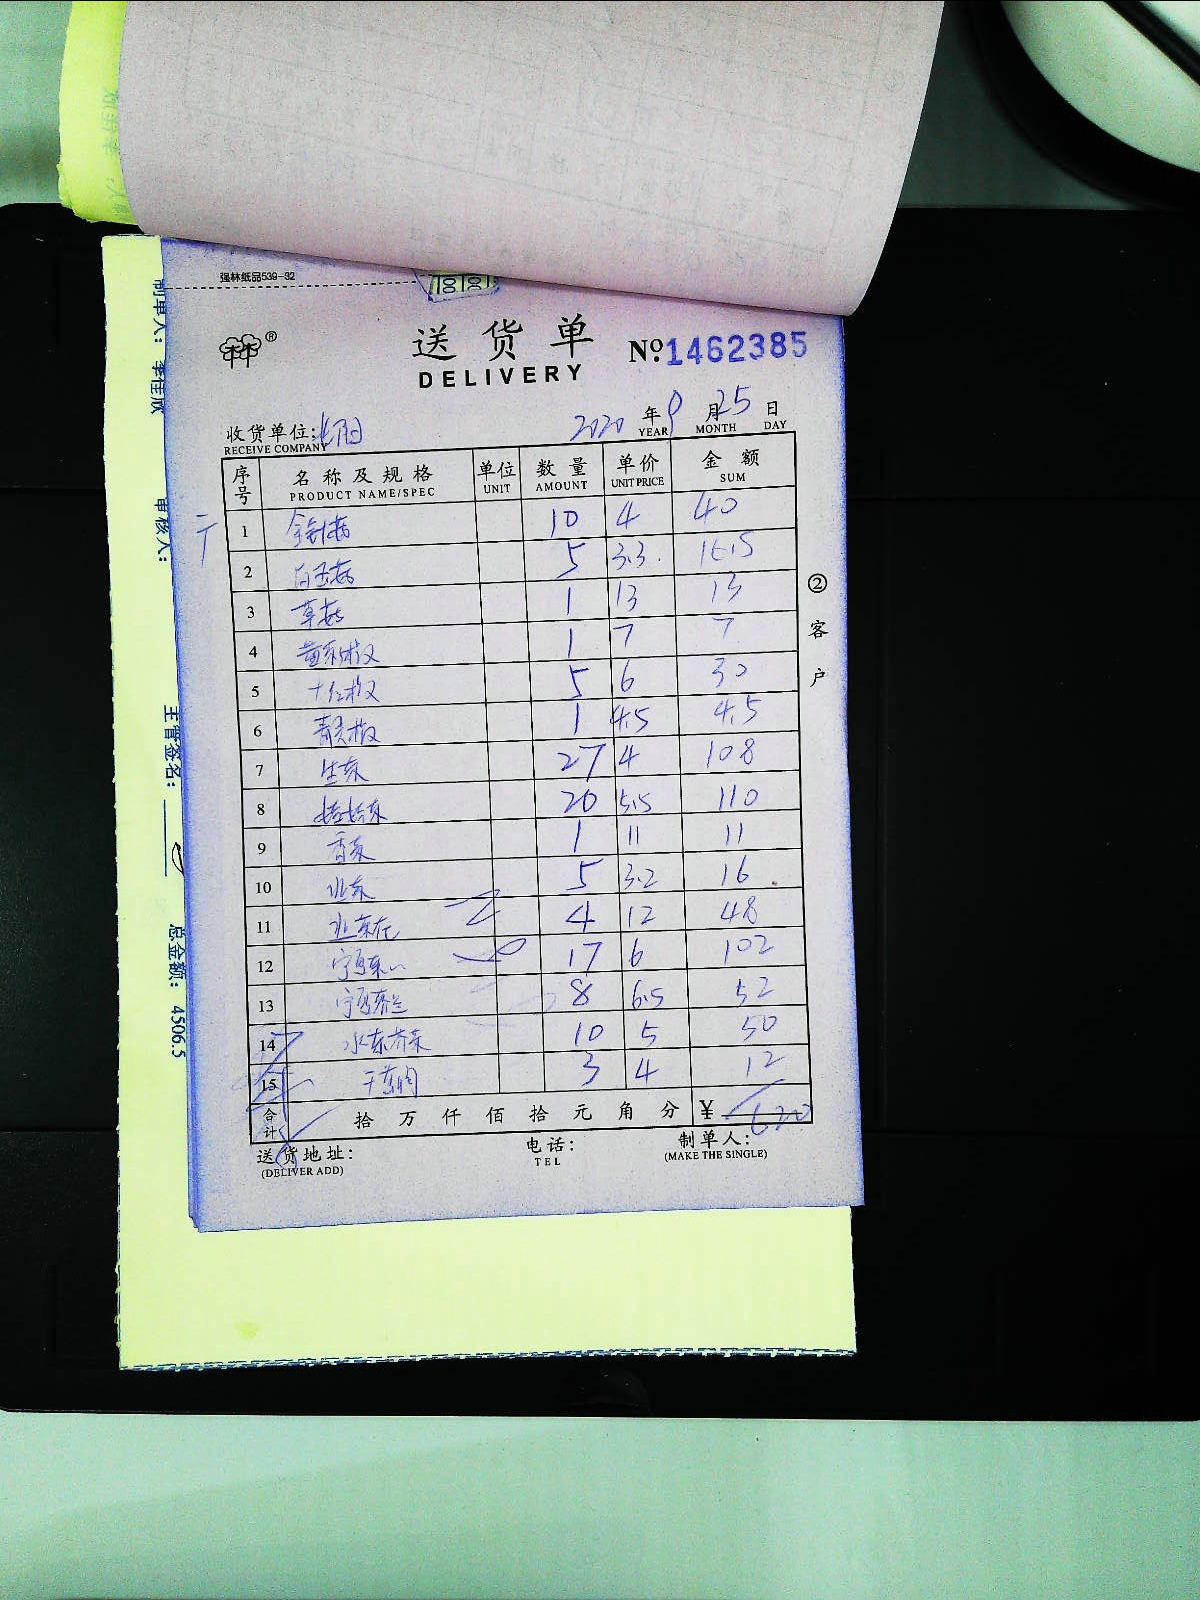 强林纸品539-32
送货单
DELIVERY
№:1462385
收货单位:
RECEIVE COMPANY
2020 年 9 月 25 日
YEAR MONTH DAY
序号 名称及规格 单位 数量 单价 金额
PRODUCT NAME/SPEC UNIT AMOUNT UNIT PRICE SUM
1 金针菇 10 4 40
2 白玉菇 5 3.3 16.5
3 草菇 1 13 13
4 1 7 7
5 5 6 30
6 1 4.5 4.5
7 生菜 27 4 108
8 娃娃菜 20 5.5 110
9 香菜 1 11 11
10 5 3.2 16
11 4 12 48
12 17 6 102
13 8 6.5 52
14 水东芥菜 10 5 50
15 3 4 12
合计 拾 万 仟 佰 拾 元 角 分 ¥ 620
送货地址: 电话: 制单人:
(DELIVER ADD) TEL (MAKE THE SINGLE)
②客户
制单人: 李佳欣
审核人:
主管签名:
总金额: 4506.5